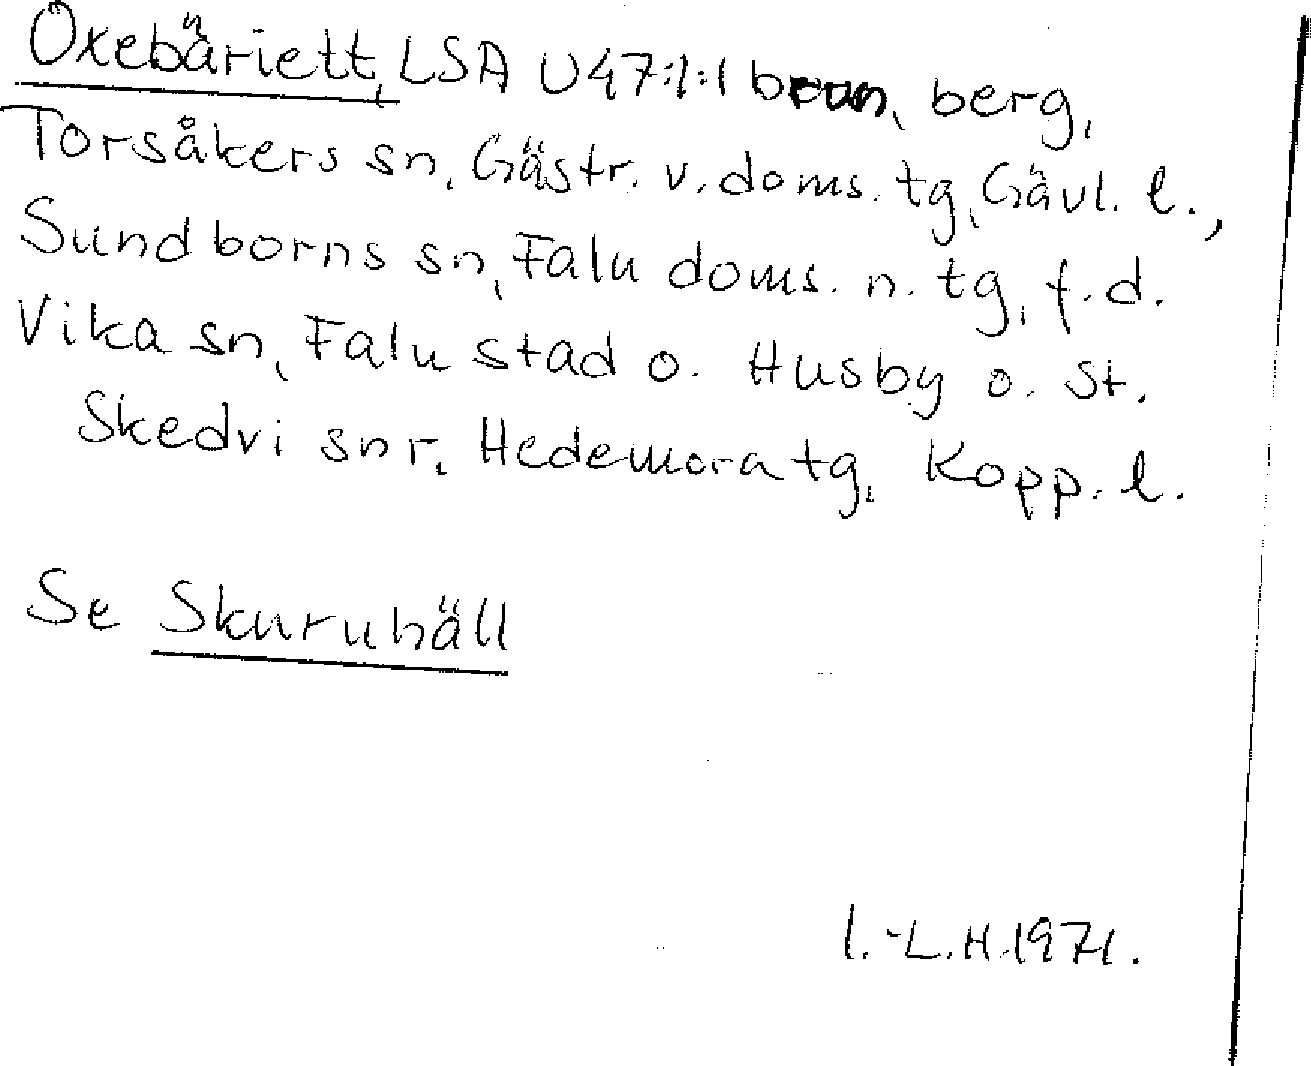 Oxebäriett, LSA U47:1:1 brun, berg,
Torsåkers sn, Gästr. v. doms. tg, Gävl. l.,
Sundborns sn, Falu doms. n. tg, f.d.
Vika sn, Falu stad o. Husby o. St.
Skedvi snr, Hedemora tg, Kopp. l.
Se Skuruhäll
I.-L.H. 1971.